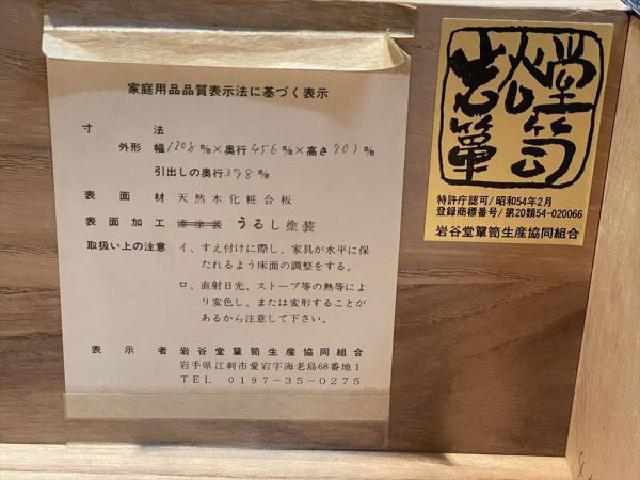 家庭用品品質表示法に基づく表示
寸法
外形 幅1208㎜×奥行456㎜×高さ701㎜
引出しの奥行398㎜
表面材 天然木化粧合板
表面加工 漆塗装 うるし塗装
取扱い上の注意 イ、すえ付けに際し、家具が水平に保
たれるよう床面の調整をする。
ロ、直射日光、ストーブ等の熱等によ
り変色し、または変形することが
あるから注意して下さい。
表示者 岩谷堂簞笥生産協同組合
岩手県江刺市愛宕字海老島68番地1
TEL 0197-35-0275
岩谷堂
簞笥
特許庁認可/昭和54年2月
登録商標番号/第20類54-020066
岩谷堂簞笥生産協同組合